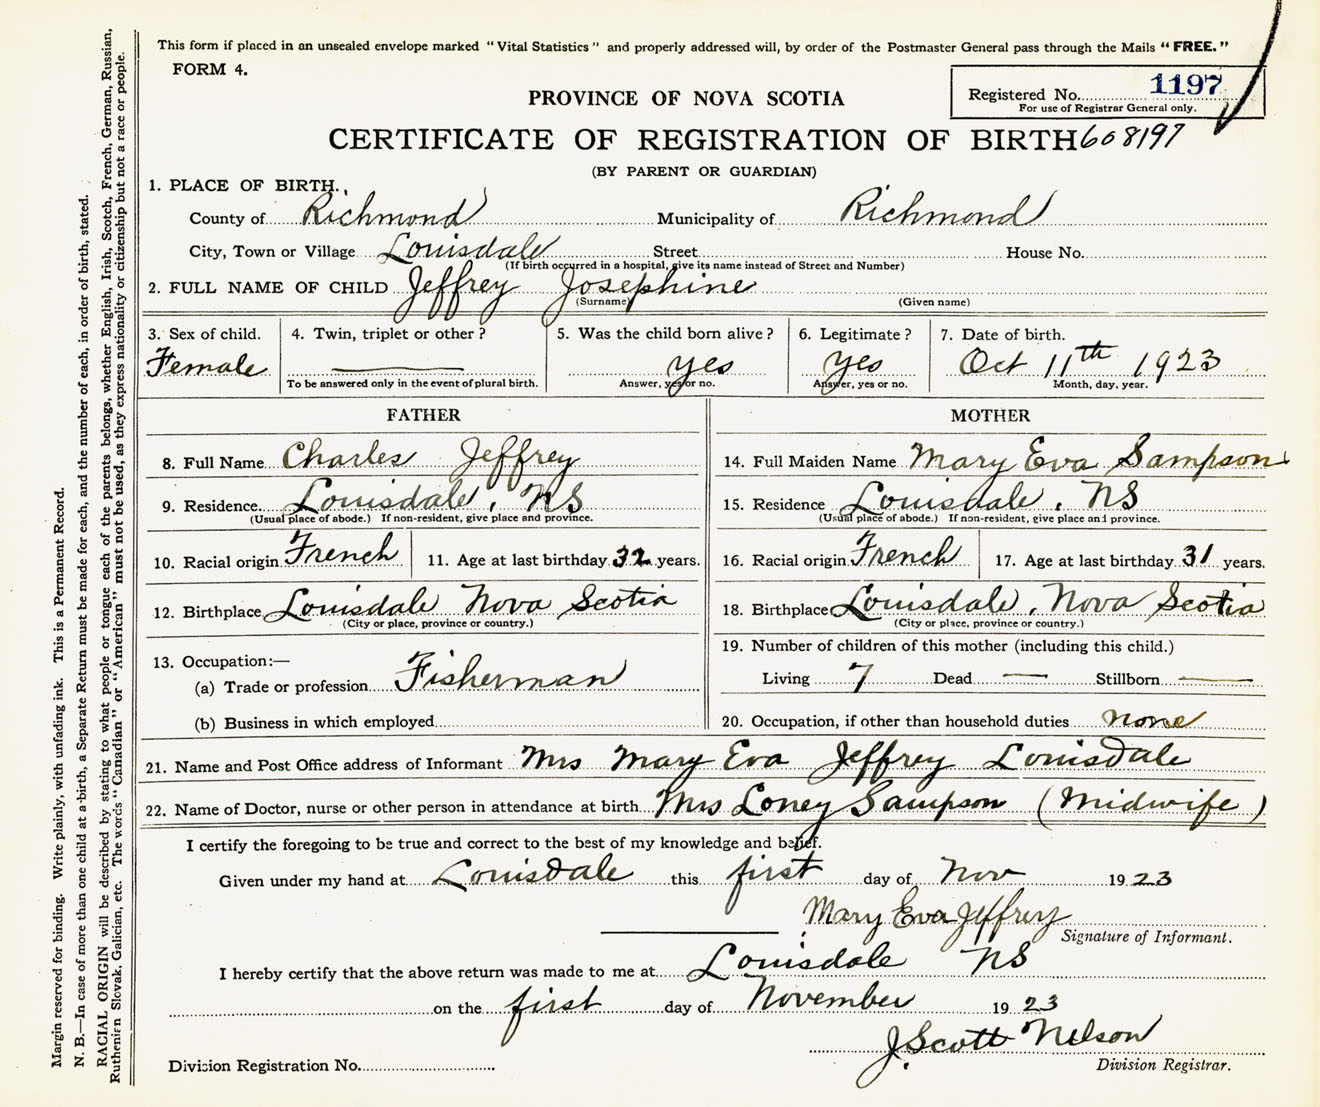 This form if placed in an unsealed envelope marked "Vital Statistics" and properly addressed will, by order of the Postmaster General pass through the Mails "FREE."
FORM 4.
Registered No. 1197
For use of Registrar General only.
PROVINCE OF NOVA SCOTIA
CERTIFICATE OF REGISTRATION OF BIRTH 608197
(BY PARENT OR GUARDIAN)
1. PLACE OF BIRTH.
County of Richmond Municipality of Richmond
City, Town or Village Louisdale Street House No.
(If birth occurred in a hospital, give its name instead of Street and Number)
2. FULL NAME OF CHILD Jeffrey Josephine
(Surname) (Given name)
3. Sex of child. 4. Twin, triplet or other? 5. Was the child born alive? 6. Legitimate? 7. Date of birth.
Female — yes yes Oct 11th 1923
To be answered only in the event of plural birth. Answer, yes or no. Answer, yes or no. Month, day, year.
FATHER MOTHER
8. Full Name Charles Jeffrey 14. Full Maiden Name Mary Eva Sampson
9. Residence. Louisdale, NS 15. Residence Louisdale, NS
(Usual place of abode.) If non-resident, give place and province. (Usual place of abode.) If non-resident, give place and province.
10. Racial origin French 11. Age at last birthday 32 years. 16. Racial origin French 17. Age at last birthday 31 years.
12. Birthplace Louisdale Nova Scotia 18. Birthplace Louisdale, Nova Scotia
(City or place, province or country.) (City or place, province or country.)
13. Occupation:— 19. Number of children of this mother (including this child.)
(a) Trade or profession Fisherman Living 7 Dead — Stillborn —
(b) Business in which employed 20. Occupation, if other than household duties none
21. Name and Post Office address of Informant Mrs Mary Eva Jeffrey Louisdale
22. Name of Doctor, nurse or other person in attendance at birth Mrs Loney Sampson (Midwife)
I certify the foregoing to be true and correct to the best of my knowledge and belief.
Given under my hand at Louisdale this first day of Nov 1923
Mary Eva Jeffrey
Signature of Informant.
I hereby certify that the above return was made to me at Louisdale NS
on the first day of November 1923
J. Scott Nelson
Division Registration No. Division Registrar.
Margin reserved for binding. Write plainly, with unfading ink. This is a Permanent Record.
N. B.—In case of more than one child at a birth, a Separate Return must be made for each, and the number of each, in order of birth, stated.
RACIAL ORIGIN will be described by stating to what people or tongue each of the parents belongs, whether English, Irish, Scotch, French, German, Russian,
Ruthenien Slovak, Galician, etc. The words "Canadian" or "American" must not be used, as they express nationality or citizenship but not a race or people.